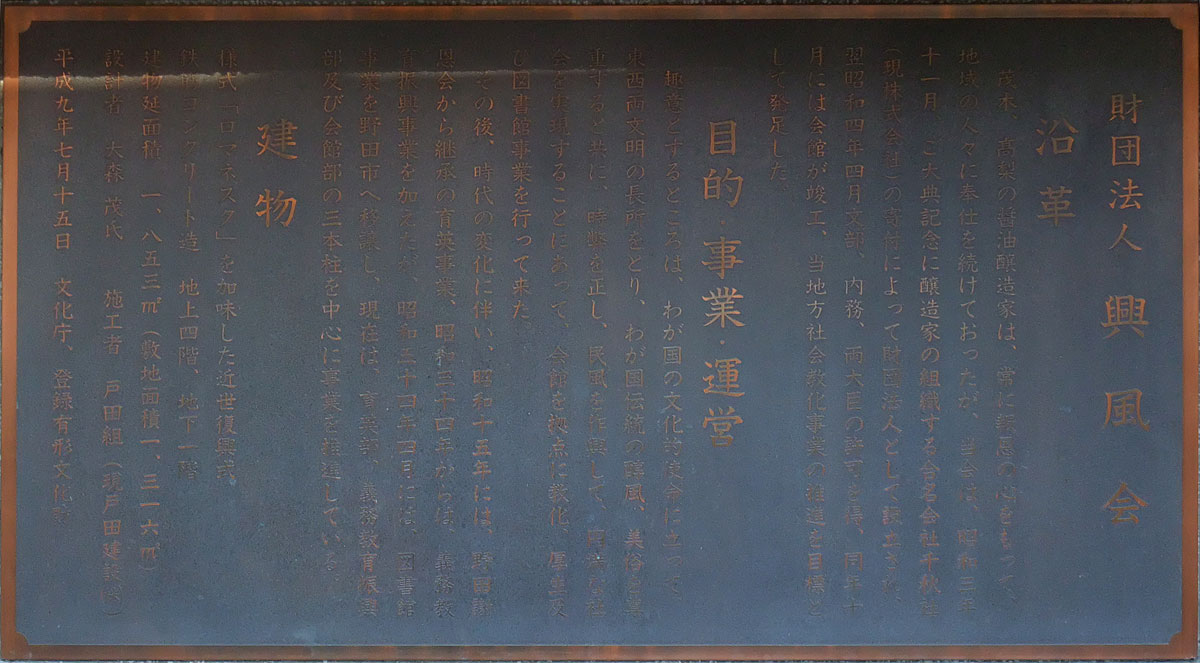 財団法人 興風会
沿革
茂木、髙梨の醤油醸造家は、常に報恩の心をもって、
地域の人々に奉仕を続けておったが、当会は、昭和三年
十一月、ご大典記念に醸造家の組織する合名会社千秋社
(現株式会社)の寄付によって財団法人として設立され、
翌昭和四年四月文部、内務、両大臣の許可を得、同年十
月には会館が竣工、当地方社会教化事業の推進を目標と
して発足した。
目的 事業・運営
趣意とするところは、わが国の文化的使命に立って、
東西両文明の長所をとり、わが国伝統の醇風、美俗を尊
重すると共に、時弊を正し、民風を作興して、
会を実現することにあって、会館を拠点に教化、厚生及
び図書館事業を行って来た。
その後、時代の変化に伴い、昭和十三年には、野田報
恩会から継承の育英事業、昭和三十四年からは、義務教
育振興事業を加えたが、昭和五十四年四月には、図書館
事業を野田市へ移譲し、現在は、育英部、義務教育振興
部及び会館部の三本柱を中心に事業を推進している。
建物
様式「ロマネスク」を加味した近世復興式
鉄筋コンクリート造 地上四階、地下一階
建物延面積 一、八五三㎡(敷地面積一、三一六㎡)
設計者 大森 茂氏 施工者 戸田組(現戸田建設㈱)
平成九年七月十五日 文化庁、登録有形文化財